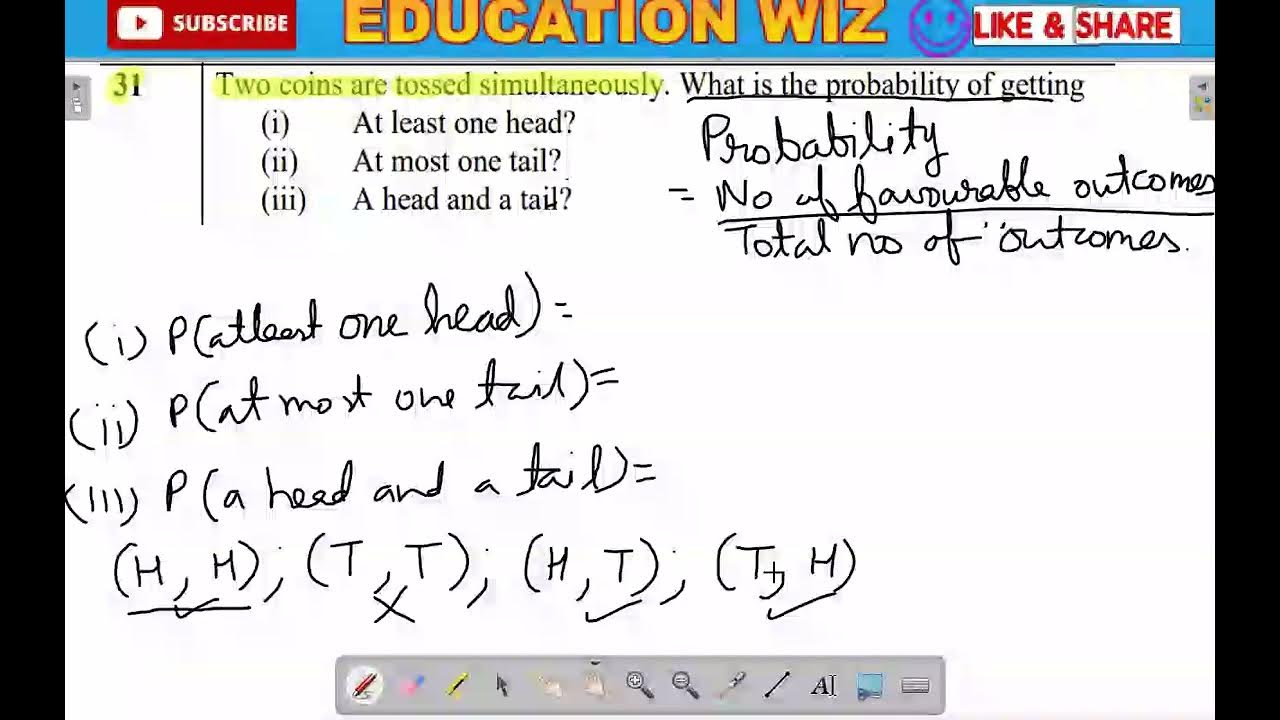 SUBSCRIBE EDUCATION WIZ LIKE & SHARE
31 Two coins are tossed simultaneously. What is the probability of getting
(i) At least one head?
(ii) At most one tail?
(iii) A head and a tail?
Probability
= No of favourable outcomes
Total no of outcomes.
(i) P(atleast one head) =
(ii) P(at most one tail) =
(iii) P(a head and a tail) =
(H, H); (T, T); (H, T); (T, H)
AI